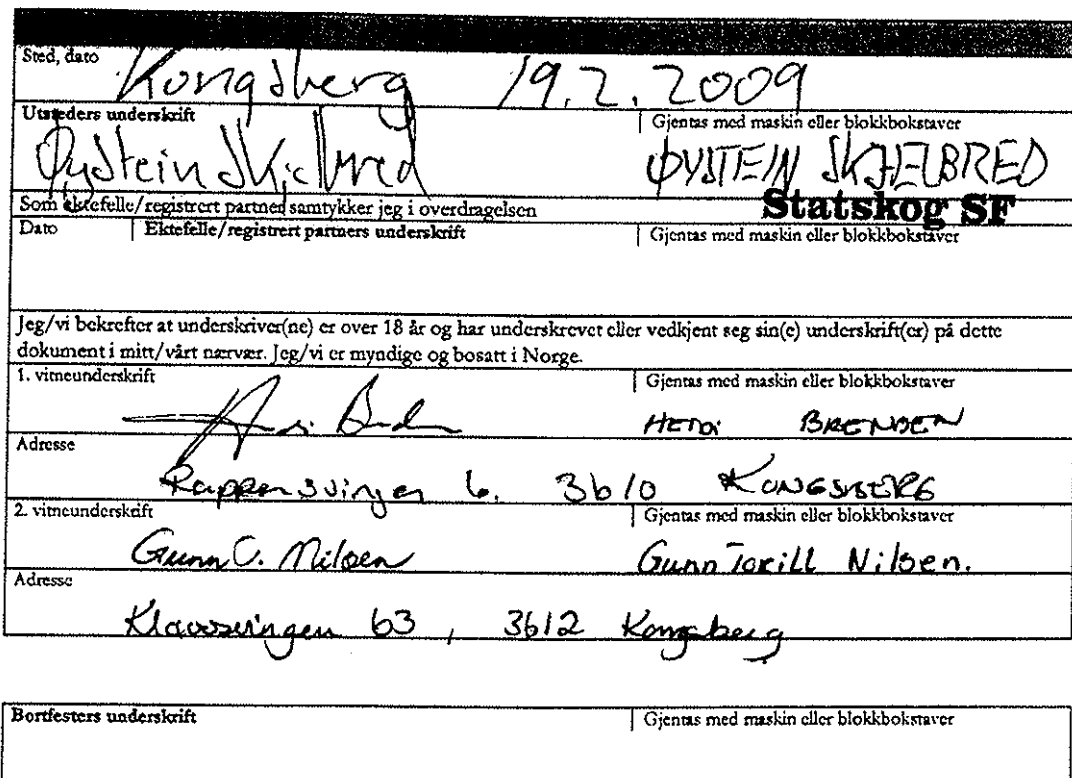 Sted, dato
Kongsberg 19.2.2009
Utsteders underskrift Gjentas med maskin eller blokkbokstaver
Øystein Skjelbred ØYSTEIN SKJELBRED
Som ektefelle/registrert partner samtykker jeg i overdragelsen Statskog SF
Dato Ektefelle/registrert partners underskrift Gjentas med maskin eller blokkbokstaver
Jeg/vi bekrefter at underskriver(ne) er over 18 år og har underskrevet eller vedkjent seg sin(e) underskrift(er) på dette
dokument i mitt/vårt nærvær. Jeg/vi er myndige og bosatt i Norge.
1. vitneunderskrift Gjentas med maskin eller blokkbokstaver
HEIDI BRENDEN
Adresse
3610 KONGSBERG
2. vitneunderskrift Gjentas med maskin eller blokkbokstaver
Gunn T. Nilsen Gunn Torill Nilsen.
Adresse
63, 3612 Kongsberg
Bortfesters underskrift Gjentas med maskin eller blokkbokstaver